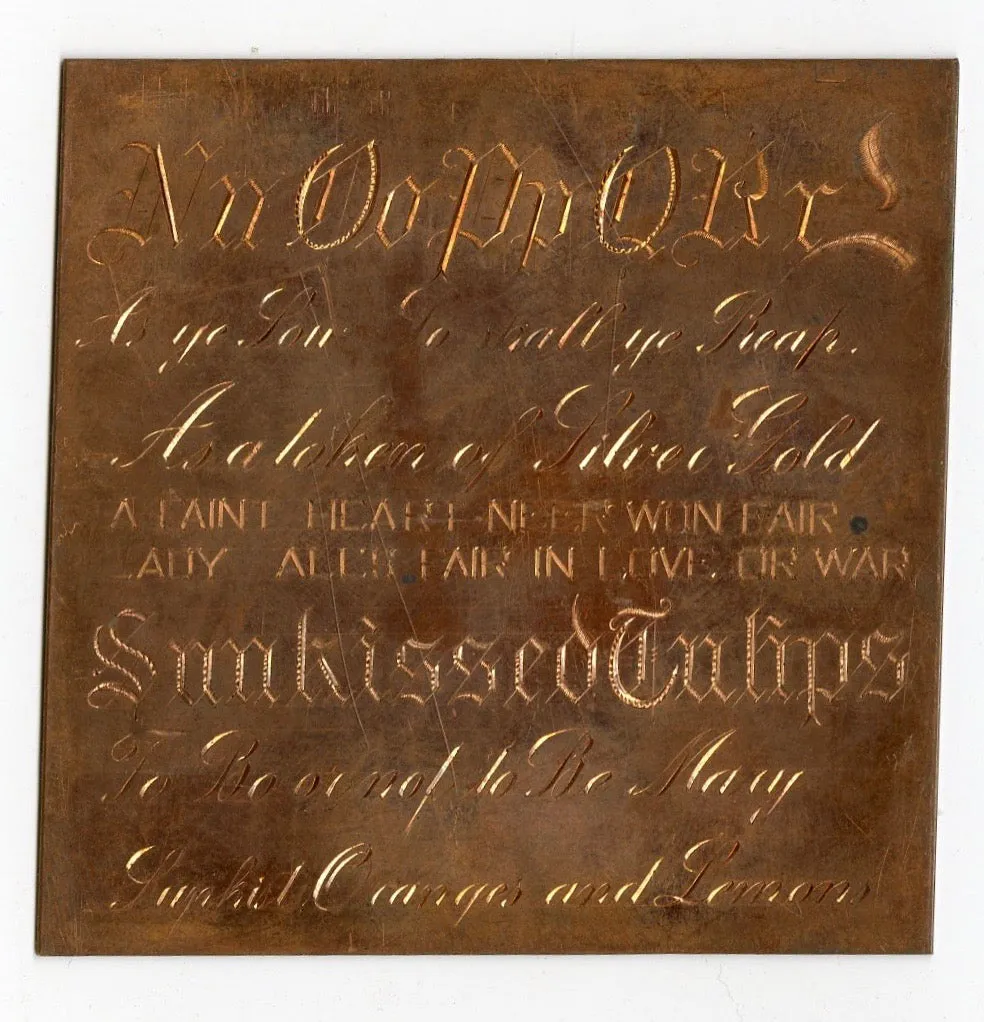 Nn Oo Pp Q Rr
As ye Sow So shall ye Reap.
As a token of Silver Gold
A FAINT HEART NEER WON FAIR
LADY ALL'S FAIR IN LOVE OR WAR
Sunkissed Tulips
To Be or not to Be Mary
Sunkist Oranges and Lemons